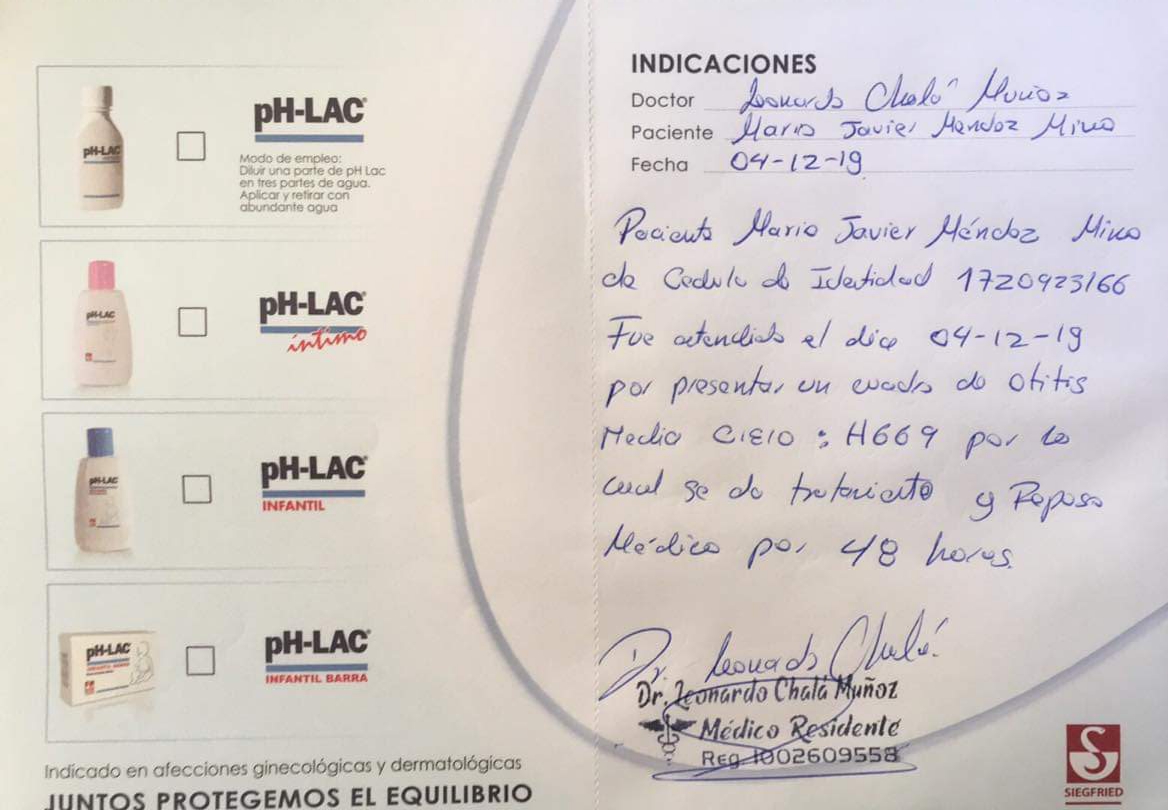 pH-LAC
pH-LAC®
Modo de empleo:
Diluir una parte de pH Lac
en tres partes de agua.
Aplicar y retirar con
abundante agua
pH-LAC
pH-LAC®
íntimo
pH-LAC
pH-LAC®
INFANTIL
pH-LAC
INFANTIL BARRA
pH-LAC®
INFANTIL BARRA
Indicado en afecciones ginecológicas y dermatológicas
JUNTOS PROTEGEMOS EL EQUILIBRIO
INDICACIONES
Doctor Leonardo Chalá Muñoz
Paciente Mario Javier Mendoz Mino
Fecha 04-12-19
Paciente Mario Javier Méndoz Mino
de Cedula de Identidad 1720923166
Fue atendido el dia 04-12-19
por presentar un cuadro de Otitis
Media CIE10 : H669 por lo
cual se da tratamiento y Reposo
Médico por 48 horas.
Dr. Leonardo Chalá.
Dr. Leonardo Chalá Muñoz
Médico Residente
Reg. 1002609558
SIEGFRIED